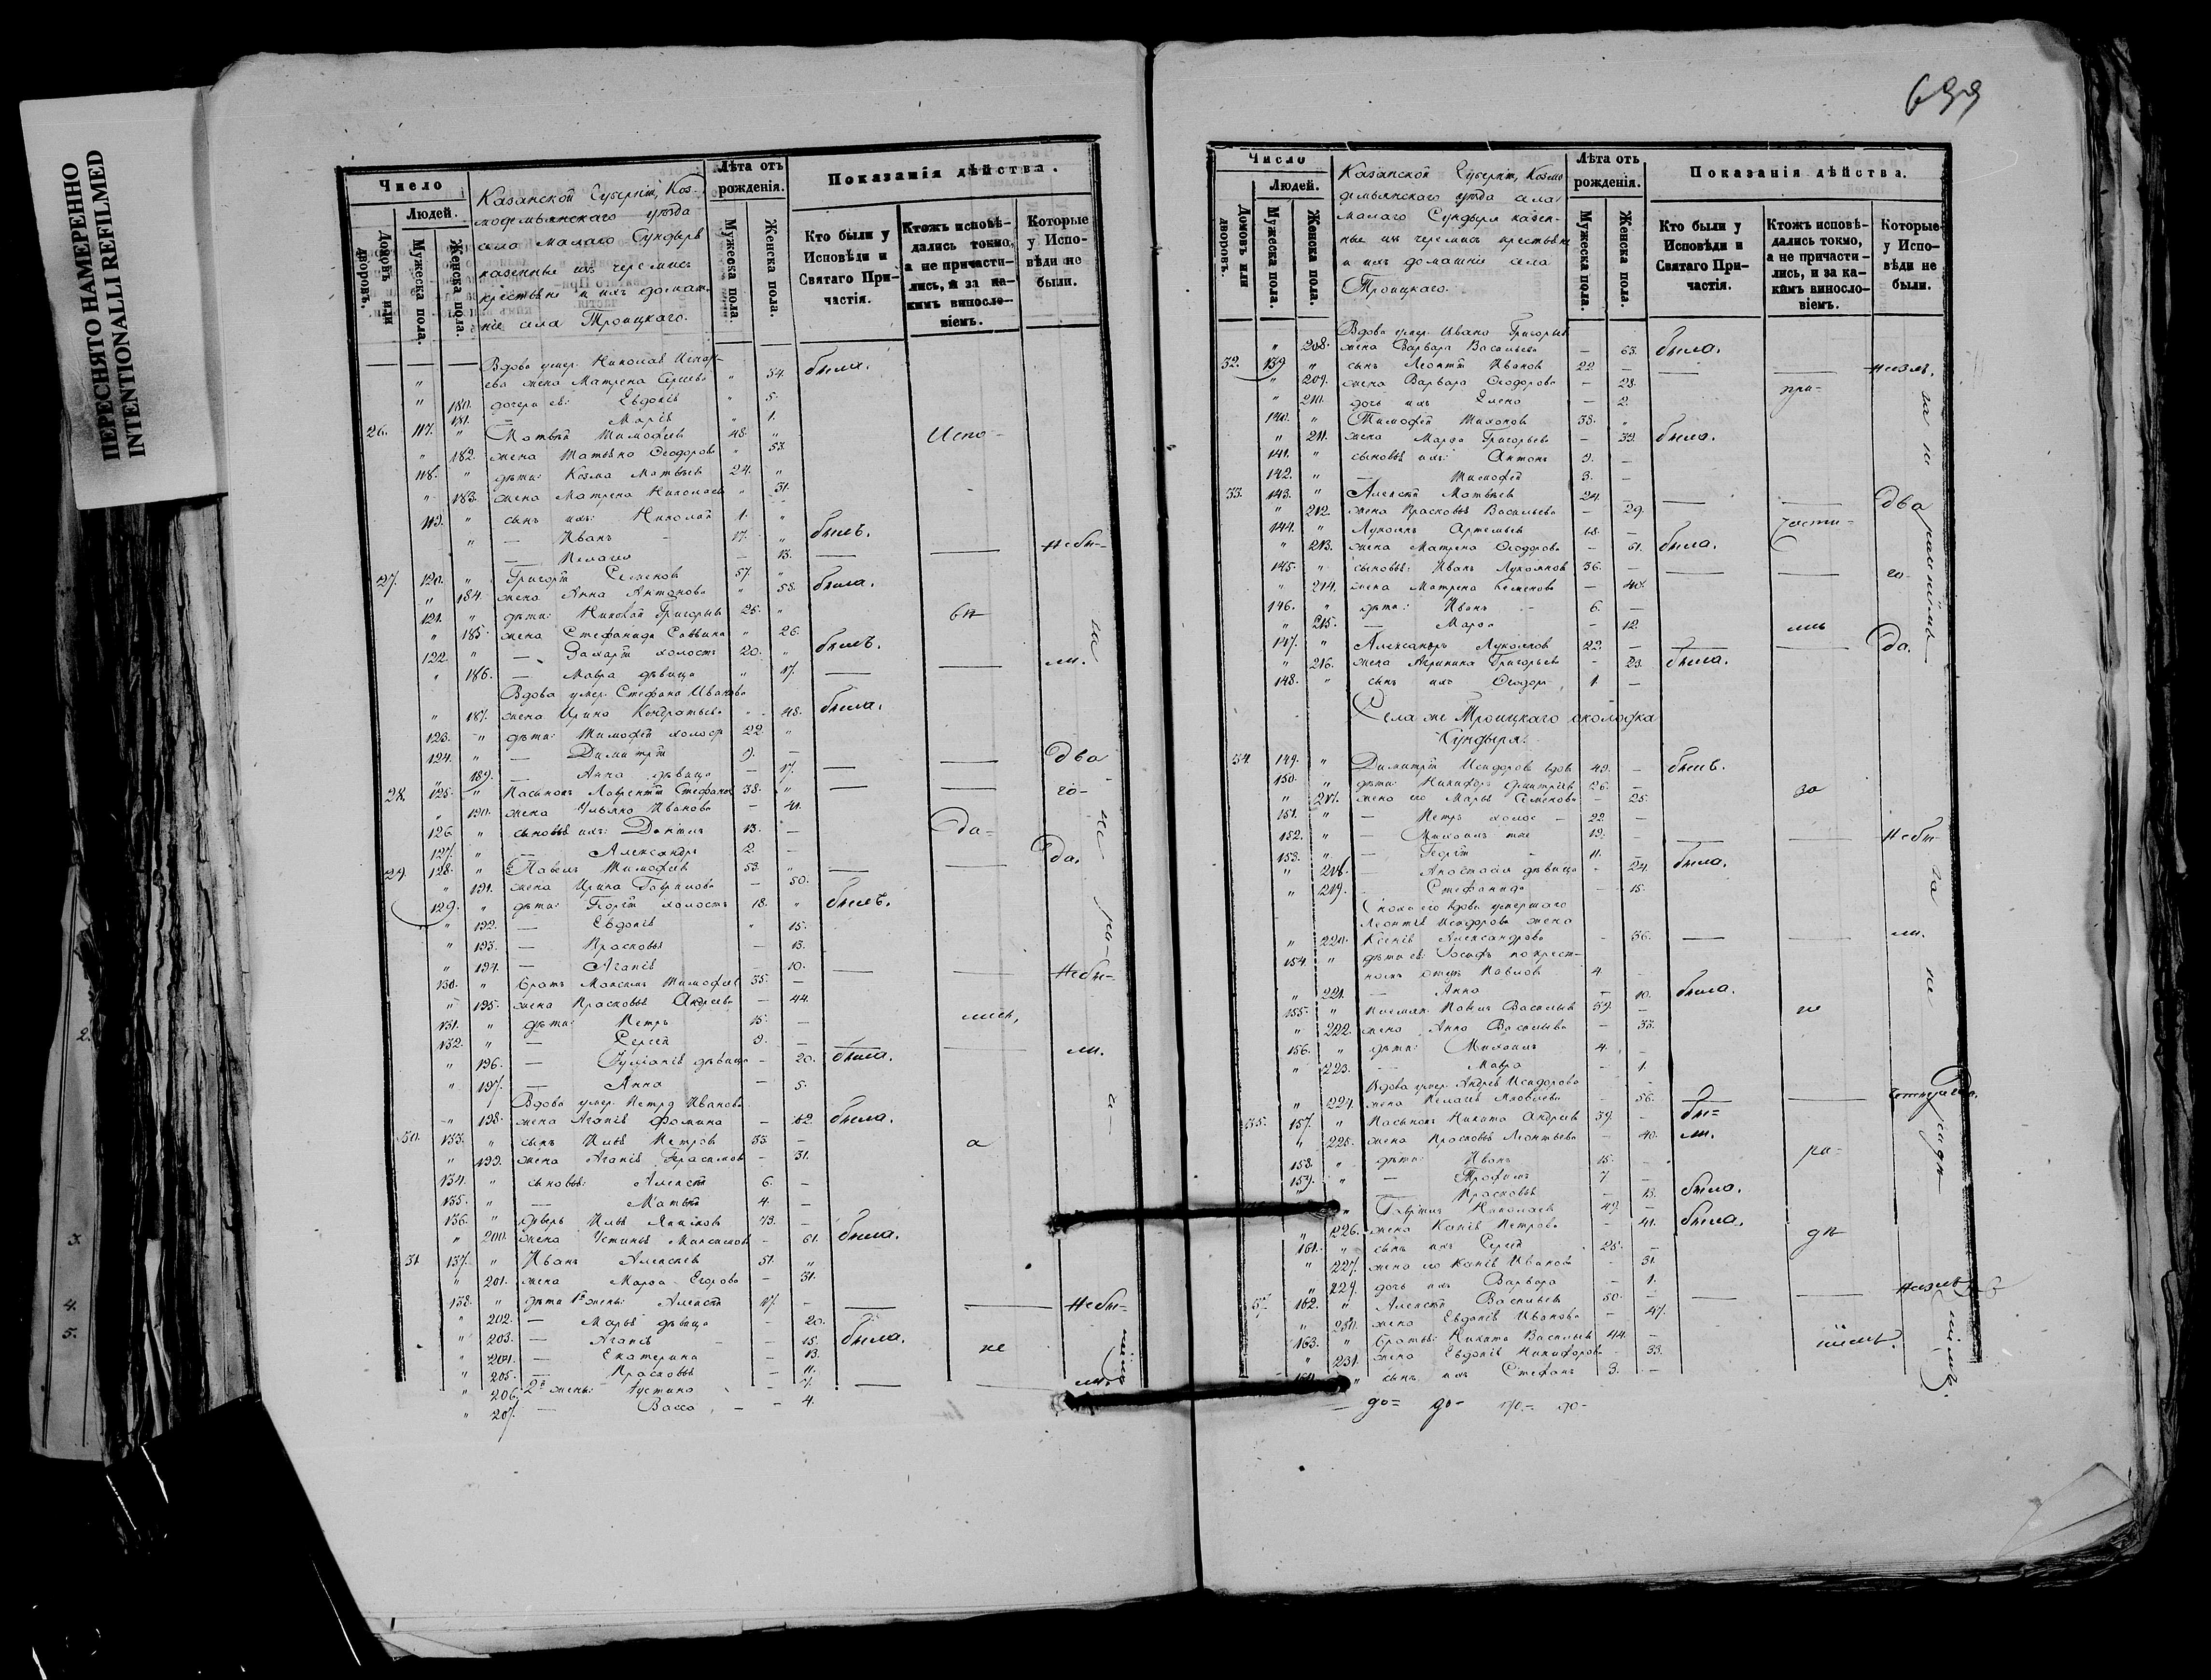 ПЕРЕСНЯТО НАМЕРЕННО
INTENTIONALLI REFILMED
2.
3.
4.
5.
Число
Людей.
Домовъ или дворовъ.
Мужеска пола.
Женска пола.
Казанской Губерніи, Коз-
модемьянскаго уѣзда
села Малаго Сундыря
казенные изъ черемисъ
крестьяне и ихъ домаш-
ніе села Троицкаго.
Лѣта отъ рожденія.
Мужеска пола.
Женска пола.
Показанія дѣйства.
Кто были у Исповѣди и Святаго При-частія.
Ктожъ исповѣ-дались токмо, а не причасти-лись, и за ка-кимъ винословіемъ.
Которые у Испо-вѣди не были.
Вдова умер. Николая
" ева жена Матрена " 54. была.
" 180. дочери ея: Евдокія " 5.
" 181. — Марія " 1.
26. 117. " Матвѣй Тимофеевъ 48. " Испо-
" 182. жена Татьяна Ѳеодорова " 53.
118. " дѣти: Козма Матвѣевъ 24. "
" 183. жена Матрена Николаева " 31.
119. " сынъ ихъ: Николай 1. "
" — Иванъ — 17. " былъ.
— Пелагея — 13. — — Небы-
27. 120. " Григорій Семеновъ 57. "
" 184. жена Анна Антонова " 58. была.
121. " дѣти: Николай Григорьевъ 25. "
" 185. жена Стефанида Саввина " 26.
122. " — Захарій холостъ 20. " былъ.
" 186. — Мавра дѣвица " 17. — — ли.
Вдова умер. Стефана Иванова
" 187. жена Ирина Кондратьева " 48. была.
123. " дѣти: Тимофей холост 22. "
124. " — Димитрій 9. — два
" 189. — Анна дѣвица — 17. — —
28. 125. " Пасынокъ Лаврентій Стефановъ 38. " — — го-
" 190. жена Ульяна Иванова — 41.
126. " сыновья ихъ: Даніилъ 13. — да-
127. " — Александръ 2. — да.
29. 128. " Павелъ Тимофеевъ 53. " — —
" 191. жена Ирина Гаврилова — 50.
129. " дѣти: Георгій холостъ 18. " былъ.
" 192. — Евдокія " 15.
" 193. — Прасковья — 13.
" 194. — Агапія — 10. — — Небы-
130. " братъ Максимъ Тимофеевъ 35. —
" 195. жена Прасковья Андреева — 44.
131. " дѣти: Петръ 15. —
132. " — Сергей 9. — — — ли.
" 196. — Іуліанія дѣвица — 20. была.
" 197. — Анна — 5.
Вдова умер. Петра Иванова
" 198. жена Агапія Фомина — 62. была.
30. 133. " сынъ Илья Петровъ 33. — а
" 199. жена Агапія Герасимова — 31.
134. " сыновья: Алексѣй 6. —
135. " — Матвѣй 4. —
136. " Илья 73. —
" 200. жена Устинья Максимова — 61. была.
31 137. " Иванъ Алексѣевъ 51. "
" 201. жена Марѳа Егорова — 31.
138. " дѣти 1й жены: Алексѣй 17. — — — Небы-
" 202. — Марья дѣвица — 20.
" 203. — Агапія — 15. была. не
" 204. — Екатерина — 13.
" 205. — Прасковья — 11.
" 206. 2й жены: Іустина — 7. — — ли.
" 207. — Васса — 4.
699
Число
Людей.
Домовъ или дворовъ.
Мужеска пола.
Женска пола.
Казанской Губерніи, Козмо
демьянскаго уѣзда села
Малаго Сундыря казен-
ные изъ черемисъ крестьяне
и ихъ домашніе села
Троицкаго.
Лѣта отъ рожденія.
Мужеска пола.
Женска пола.
Показанія дѣйства.
Кто были у Исповѣди и Святаго При-частія.
Ктожъ исповѣ-дались токмо, а не причасти-лись, и за ка-кимъ винословіемъ.
Которые у Испо-вѣди не были.
Вдова умер. Ивана Григорьев
" 208. жена Варвара Васильева — 63. была.
32. 139. " сынъ Леонтій Ивановъ 22 — — —
" 209. жена Варвара Ѳеодорова — 28. при-
" 210. дочь ихъ Елена — 2.
140. " Тимофей Тихоновъ 38. "
" 211. жена Марѳа Григорьева — 39. была.
141. " сыновья ихъ: Антонъ 9. —
142. " — Тимофей 3. —
33. 143. " Алексѣй Матвѣевъ 24. — — — два
" 212. жена Прасковья Васильева — 29.
144. " Лукоянъ Артемьевъ 68. — части-
" 213. жена Матрена Ѳеодорова — 61. была.
145. " сыновья: Иванъ Лукояновъ 36. — — — го-
" 214. жена Матрена Семенова — 40.
146. " дѣти: Иванъ — 6. —
" 215. — Марѳа — 12. лись
147. " Александръ Лукояновъ 22. — — — да.
" 216. жена Агрипина Григорьева — 23. была.
148. " сынъ ихъ Ѳеодоръ 1. —
Села же Троицкаго околодка
Сундыря.
34 149. " Димитрій Исидоровъ вдов 49. — былъ.
150. " дѣти: Никифоръ Димитріевъ 26. — за
" 217. жена его Марья Семенова — 25.
151. " — Петръ холос — 22. —
152. " — Михаилъ 19. — — — Небы-
153. " — Георгій 11. —
" 218. — Анастасія дѣвица — 24. была.
" 219. — Стефанида — 15.
Сноха его вдова умершаго
Леонтія Исидорова жена
" 220. Ксенія Александрова — 36. — — ли.
154. " дѣти ея: Іосифъ по крест-
номъ отцѣ Павловъ 4. —
" 221. — Анна — 10. была.
155. " Павелъ Васильевъ 39. — не
" 222. жена Анна Васильева — 33.
156. " дѣти: Михаилъ 4. —
" 223. — Мавра — 1.
Вдова умер. Андрея Исидорова
" 224. жена Пелагея Яковлева — 56. — —
35. 157. " Пасынокъ Никита Андреевъ 39. — бы=
" 225. жена Прасковья Леонтьева — 40. ли.
158. " дѣти: Иванъ 15. — ра-
159. " — Трофимъ 7 —
" — Прасковья — 13. была.
" Гаврилъ Николаевъ 49. —
" 226. жена Ксенія Петрова — 41. была.
161. " сынъ ихъ Сергей 25. — дѣ-
" 227. жена его Ксенія Иванова — 31.
" 229. дочь ихъ Варвара — 1.
37. 162. " Алексѣй Васильевъ 50. — — —
" 230. жена Евдокія Иванова — 47.
163. " братья: Никита Васильевъ 44. —
" 231. жена Евдокія Никифорова — 33.
164. " сынъ ихъ Стефанъ 3. —